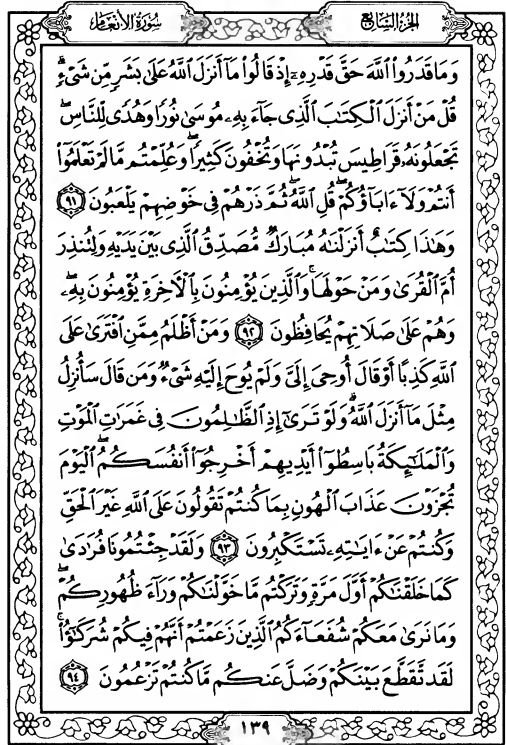 الجزء السابع سورة الأنعام
وَمَا قَدَرُوا۟ ٱللَّهَ حَقَّ قَدْرِهِۦٓ إِذْ قَالُوا۟ مَآ أَنزَلَ ٱللَّهُ عَلَىٰ بَشَرٍۢ مِّن شَىْءٍۢ ۗ
قُلْ مَنْ أَنزَلَ ٱلْكِتَـٰبَ ٱلَّذِى جَآءَ بِهِۦ مُوسَىٰ نُورًۭا وَهُدًۭى لِّلنَّاسِ ۖ
تَجْعَلُونَهُۥ قَرَاطِيسَ تُبْدُونَهَا وَتُخْفُونَ كَثِيرًۭا ۖ وَعُلِّمْتُم مَّا لَمْ تَعْلَمُوٓا۟
أَنتُمْ وَلَآ ءَابَآؤُكُمْ ۖ قُلِ ٱللَّهُ ۖ ثُمَّ ذَرْهُمْ فِى خَوْضِهِمْ يَلْعَبُونَ ٩١
وَهَـٰذَا كِتَـٰبٌ أَنزَلْنَـٰهُ مُبَارَكٌۭ مُّصَدِّقُ ٱلَّذِى بَيْنَ يَدَيْهِ وَلِتُنذِرَ
أُمَّ ٱلْقُرَىٰ وَمَنْ حَوْلَهَا ۚ وَٱلَّذِينَ يُؤْمِنُونَ بِٱلْـَٔاخِرَةِ يُؤْمِنُونَ بِهِۦ ۖ
وَهُمْ عَلَىٰ صَلَاتِهِمْ يُحَافِظُونَ ٩٢ وَمَنْ أَظْلَمُ مِمَّنِ ٱفْتَرَىٰ عَلَى
ٱللَّهِ كَذِبًا أَوْ قَالَ أُوحِىَ إِلَىَّ وَلَمْ يُوحَ إِلَيْهِ شَىْءٌۭ وَمَن قَالَ سَأُنزِلُ
مِثْلَ مَآ أَنزَلَ ٱللَّهُ ۗ وَلَوْ تَرَىٰٓ إِذِ ٱلظَّـٰلِمُونَ فِى غَمَرَٰتِ ٱلْمَوْتِ
وَٱلْمَلَـٰٓئِكَةُ بَاسِطُوٓا۟ أَيْدِيهِمْ أَخْرِجُوٓا۟ أَنفُسَكُمُ ۖ ٱلْيَوْمَ
تُجْزَوْنَ عَذَابَ ٱلْهُونِ بِمَا كُنتُمْ تَقُولُونَ عَلَى ٱللَّهِ غَيْرَ ٱلْحَقِّ
وَكُنتُمْ عَنْ ءَايَـٰتِهِۦ تَسْتَكْبِرُونَ ٩٣ وَلَقَدْ جِئْتُمُونَا فُرَٰدَىٰ
كَمَا خَلَقْنَـٰكُمْ أَوَّلَ مَرَّةٍۢ وَتَرَكْتُم مَّا خَوَّلْنَـٰكُمْ وَرَآءَ ظُهُورِكُمْ ۖ
وَمَا نَرَىٰ مَعَكُمْ شُفَعَآءَكُمُ ٱلَّذِينَ زَعَمْتُمْ أَنَّهُمْ فِيكُمْ شُرَكَـٰٓؤُا۟ ۚ
لَقَد تَّقَطَّعَ بَيْنَكُمْ وَضَلَّ عَنكُم مَّا كُنتُمْ تَزْعُمُونَ ٩٤
١٣٩